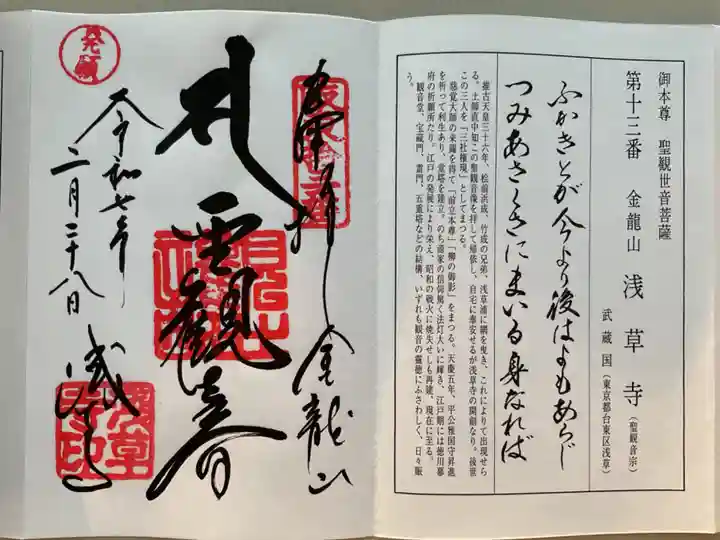 御本尊 聖観世音菩薩
第十三番 金龍山 浅草寺(聖観音宗)
武蔵国(東京都台東区浅草)
ふかきとが今より後はよもあらじ
つみあさくさにまいる身なれば
推古天皇三十六年、桧前浜成、竹成の兄弟、浅草浦に網を曳き、これによりて出現せら
る。土師直中知この聖観音像を拝して帰依し、自宅に奉安せるが浅草寺の開創なり。後世
この三人を「三社権現」としてまつる。
慈覚大師の来錫を得て「前立本尊」「柳の御影」をまつる。天慶五年、平公雅国守昇進
を祈って利生あり、堂塔を建立。のち道家の信仰篤く法灯大いに輝き、江戸期には徳川幕
府の祈願所たり。江戸の発展により栄え、昭和の戦火に焼失せしも再建、現在に至る。
観音堂、宝蔵門、雷門、五重塔などの結構、いずれも観音の霊徳にふさわしく、日々賑
う。
奉拝 金龍山
聖観音
浅草寺
令和七年
二月二十八日
発願